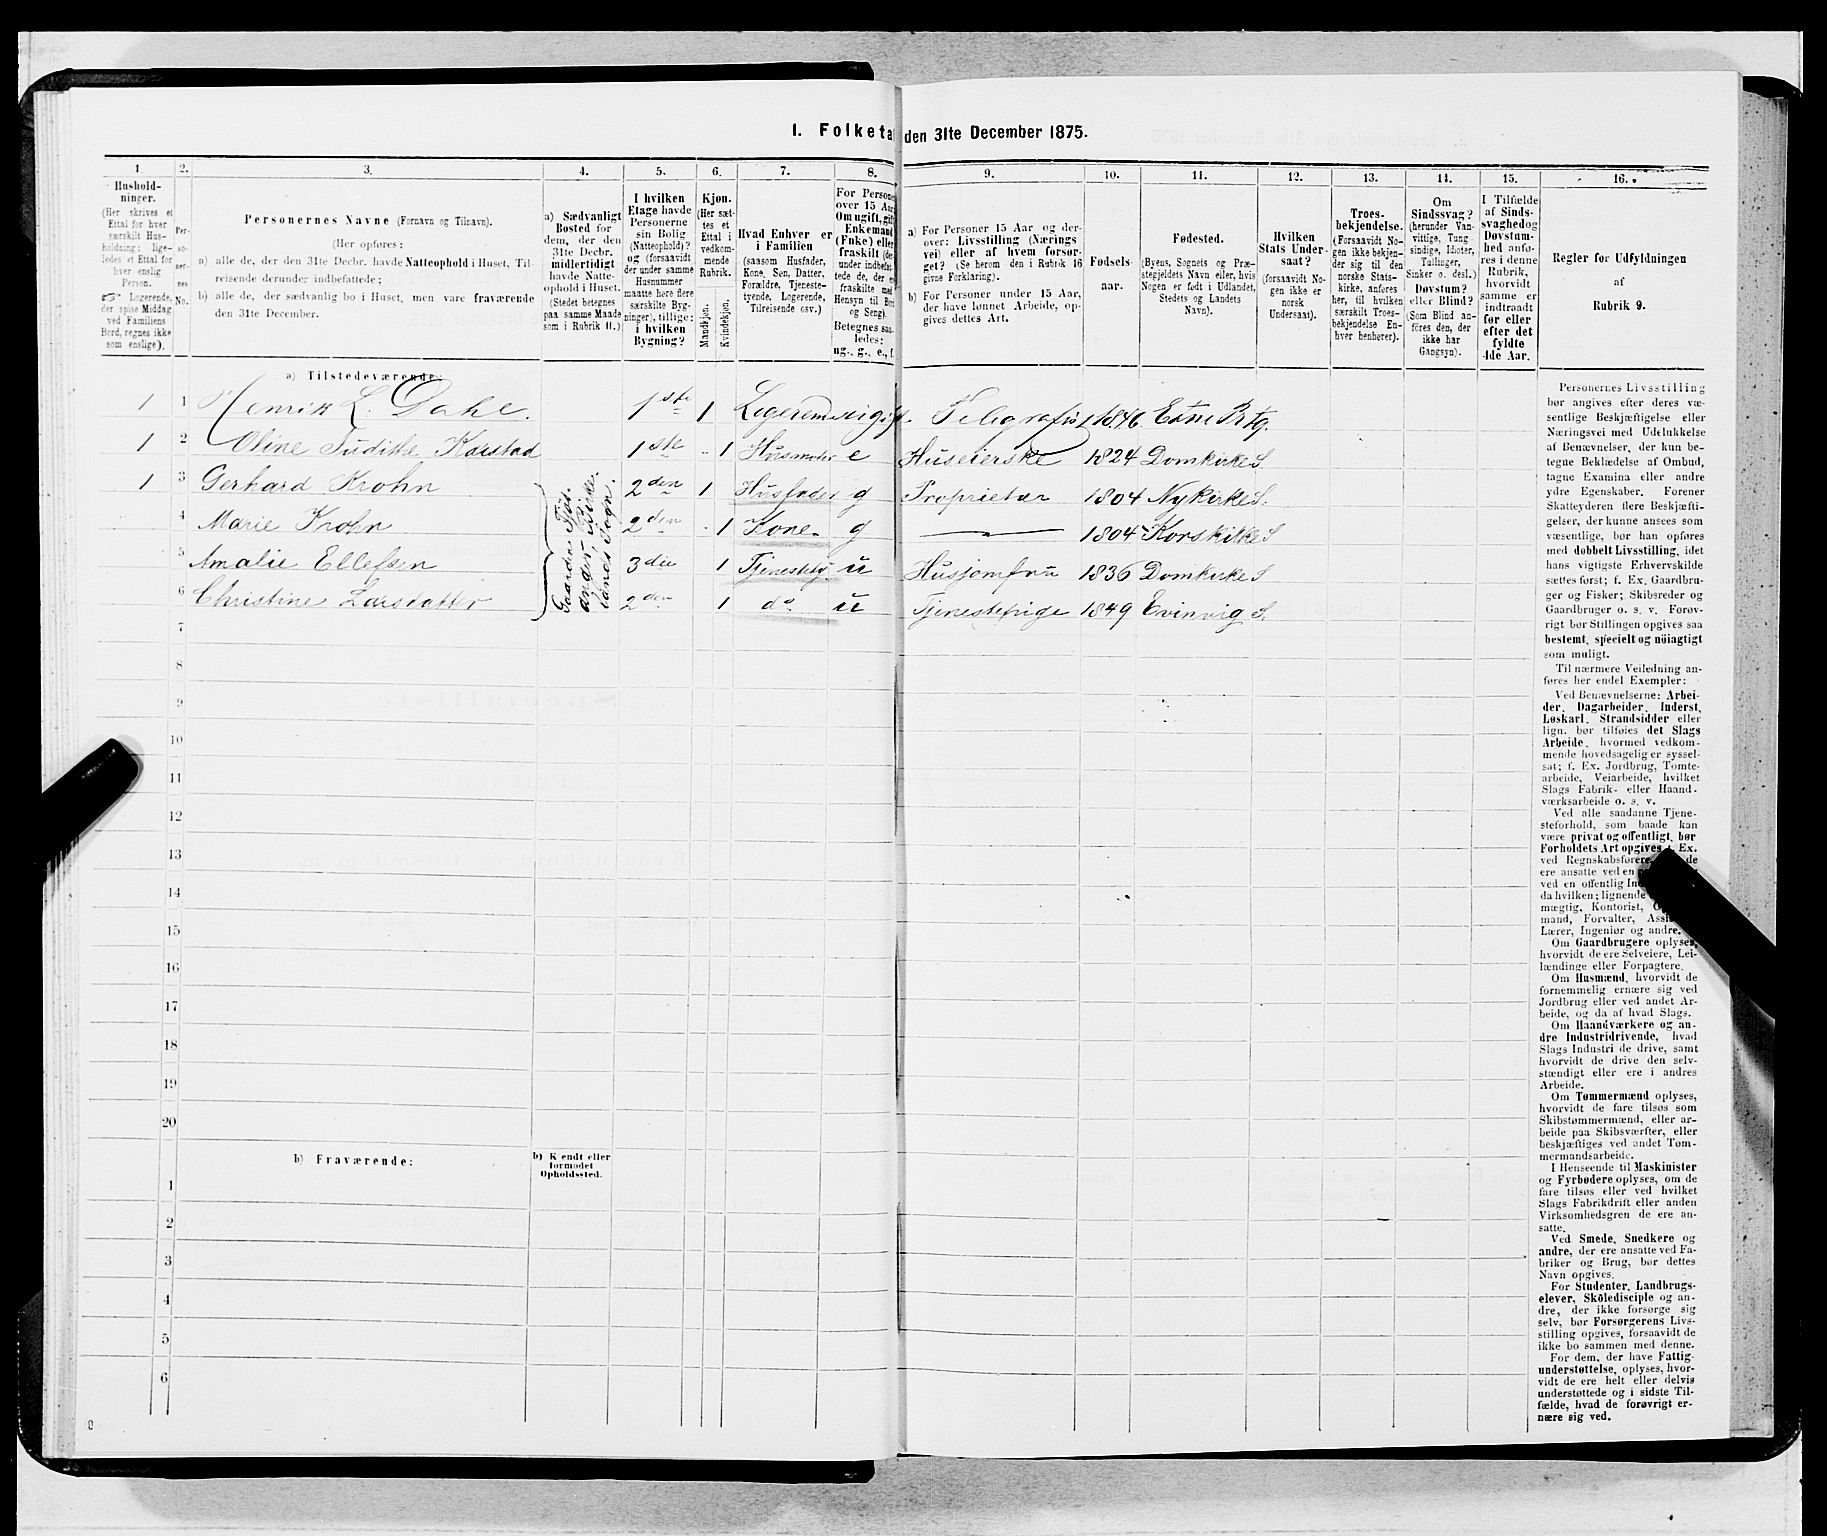 I. Folketal den 31te December 1875.
1.
Hushold-
ninger.
(Her skrives et
Ettal for hver
særskilt Hus-
holdning; lige-
ledes et Ettal for
hver enslig
Person.
☞ Logerende,
der spise Middag
ved Familiens
Bord, regnes ikke
som enslige).
2.
Per-
so-
ner-
nes
No.
3.
Personernes Navne (Fornavn og Tilnavn).
(Her opføres:
a) alle de, der den 31te Decbr. havde Natteophold i Huset, Til-
reisende derunder indbefattede;
b) alle de, der sædvanlig bo i Huset, men vare fraværende
den 31te December.
4.
a) Sædvanligt
Bosted for
dem, der den
31te Decbr.
midlertidigt
havde Natte-
ophold i Huset.
(Stedet betegnes
paa samme Maade
som i Rubrik 11.)
5.
I hvilken
Etage havde
Personerne
sin Bolig
(Natteophold)?
og (forsaavidt
der under samme
Husnummer
maatte høre flere
særskilte Byg-
ninger), tillige:
i hvilken
Bygning?
6.
Kjøn.
(Her sæt-
tes et
Ettal i
vedkom-
mende
Rubrik.
Mandkjøn.
Kvindekjøn.
7.
Hvad Enhver er
i Familien
(saasom Husfader,
Kone, Søn, Datter,
Forældre, Tjeneste-
tyende, Logerende,
Tilreisende osv.)
8.
For Persone
over 15 Aar
Om ugift, gift
Enkemand
(Enke) eller
fraskilt (der-
under indbefat-
tede de, der er
fraskilte med
Hensyn til Bord
og Seng).
Betegnes saa-
ledes:
ug., g., e., f.
9.
a) For Personer 15 Aar og der-
over: Livsstilling (Nærings
vei) eller af hvem forsør-
get? (Se herom den i Rubrik 16
givne Forklaring).
b) For Personer under 15 Aar,
der have lønnet Arbeide, op-
gives dettes Art.
10.
Fødsels-
aar.
11.
Fødested.
(Byens, Sognets og Præ-
stegjeldets Navn eller, hvis
Nogen er født i Udlandet,
Stedets og Landets
Navn).
12.
Hvilken
Stats Under-
saat?
(forsaavidt No-
gen ikke er
norsk
Undersaat).
13.
Troes-
bekjendelse.
(Forsaavidt No-
gen ikke bekjen-
der sig til den
norske Stats-
kirke, anføres
her, til hvilken
særskilt Troes-
bekjendelse En-
hver henhører).
14.
Om
Sindssvag?
(herunder Van-
vittige, Tung-
sindige, Idioter,
Tullinger,
Sinker o. desl.)
Døvstum?
eller Blind?
(Som Blind an-
føres den, der
ikke har
Gangsyn).
15.
I Tilfælde
af Sinds-
svaghed og
Døvstum-
hed anfø-
res i denne
Rubrik,
hvorvidt
samme er
indtraadt
før eller
efter det
fyldte
4de Aar.
16.
Regler for Udfyldningen
af
Rubrik 9.
a) Tilstedeværende:
1 1 Henrik L. Dahl. 1ste 1 Logerende ugift. Telegrafist 1846 Etne Brtg.
1 2 Oline Judithe Karstad 1ste 1 Husmoder e Huseierske 1824 Domkirke S.
1 3 Gerhard Krohn 2den 1 Husfader g Proprietær 1804 Nykirke S.
4 Marie Krohn 2den 1 Kone g 1804 Korskirke S
5 Amalie Ellefsen 3die 1 Tjenestetj u Husjomfru 1836 Domkirke S
6 Christine Larsdatter 2den 1 do u Tjenestepige 1849 Evinvig S.
7
8
9
10
11
12
13
14
15
16
17
18
19
20
b) Fraværende:
b) Kjendt eller
formodet
Opholdssted.
1
2
3
4
5
6
Personernes Livsstilling
bør angives efter deres væ-
sentlige Beskjæftigelse eller
Næringsvei med Udelukkelse
af Benævnelser, der kun be-
tegne Beklædelse af Ombud,
tagne Examina eller andre
ydre Egenskaber. Forener
Skatteyderen flere Beskjæfti-
gelser, der kunne ansees som
væsentlige, bør han opføres
med dobbelt Livsstilling, idet
hans vigtigste Erhvervskilde
sættes først; f. Ex. Gaardbru-
ger og Fisker; Skibsreder og
Gaardbruger o. s. v. Forøv-
rigt bør Stillingen opgives saa
bestemt, specielt og nöiagtigt
som muligt.
Til nærmere Veiledning an-
føres her endel Exempler:
Ved Benævnelserne: Arbei-
der, Dagarbeider, Inderst,
Løskarl, Strandsidder eller
lign. bør tilføies det Slags
Arbeide, hvormed vedkom-
mende hovedsagelig er syssel-
sat; f. Ex. Jordbrug, Tomte-
arbeide, Veiarbeide, hvilket
Slags Fabrik- eller Haand-
værksarbeide o. s. v.
Ved alle saadanne Tjene-
steforhold, som baade kan
være privat og offentligt, bør
Forholdets Art opgives f. Ex.
ved Regnskabsførere,
ere ansatte ved en
ved en offentlig
da hvilken; lignende
mægtig, Kontorist,
mand, Forvalter,
Lærer, Ingeniør og andre.
Om Gaardbrugere oplyses,
hvorvidt de ere Selveiere, Lei-
lændinge eller Forpagtere.
Om Husmænd, hvorvidt de
fornemmelig ernære sig ved
Jordbrug eller ved andet Ar-
beide, og da af hvad Slags.
Om Haandværkere og an-
dre Industridrivende, hvad
Slags Industri de drive, samt
hvorvidt de drive den selv-
stændigt eller ere i andres
Arbeide.
Om Tømmermænd oplyses,
hvorvidt de fare tilsøs som
Skibstømmermænd, eller ar-
beide paa Skibsværfter, eller
beskjæftiges ved andet Tøm-
mermandsarbeide.
I Henseende til Maskinister
og Fyrbødere oplyses, om de
fare tilsøs eller ved hvilket
Slags Fabrikdrift eller anden
Virksomhedsgren de ere an-
satte.
Ved Smede, Snedkere og
andre, der ere ansatte ved Fa-
briker og Brug, bør dettes
Navn opgives.
For Studenter, Landbrugs-
elever, Skoledisciple og an-
dre, der ikke forsørge sig
selv, bør Forsørgerens Livs-
stilling opgives, forsaavidt de
ikke bo sammen med denne.
For dem, der have Fattig-
understøttelse, oplyses, hvor-
vidt de ere helt eller delvis
understøttede og i sidste Til-
fælde, hvad de forøvrigt er-
nære sig ved.